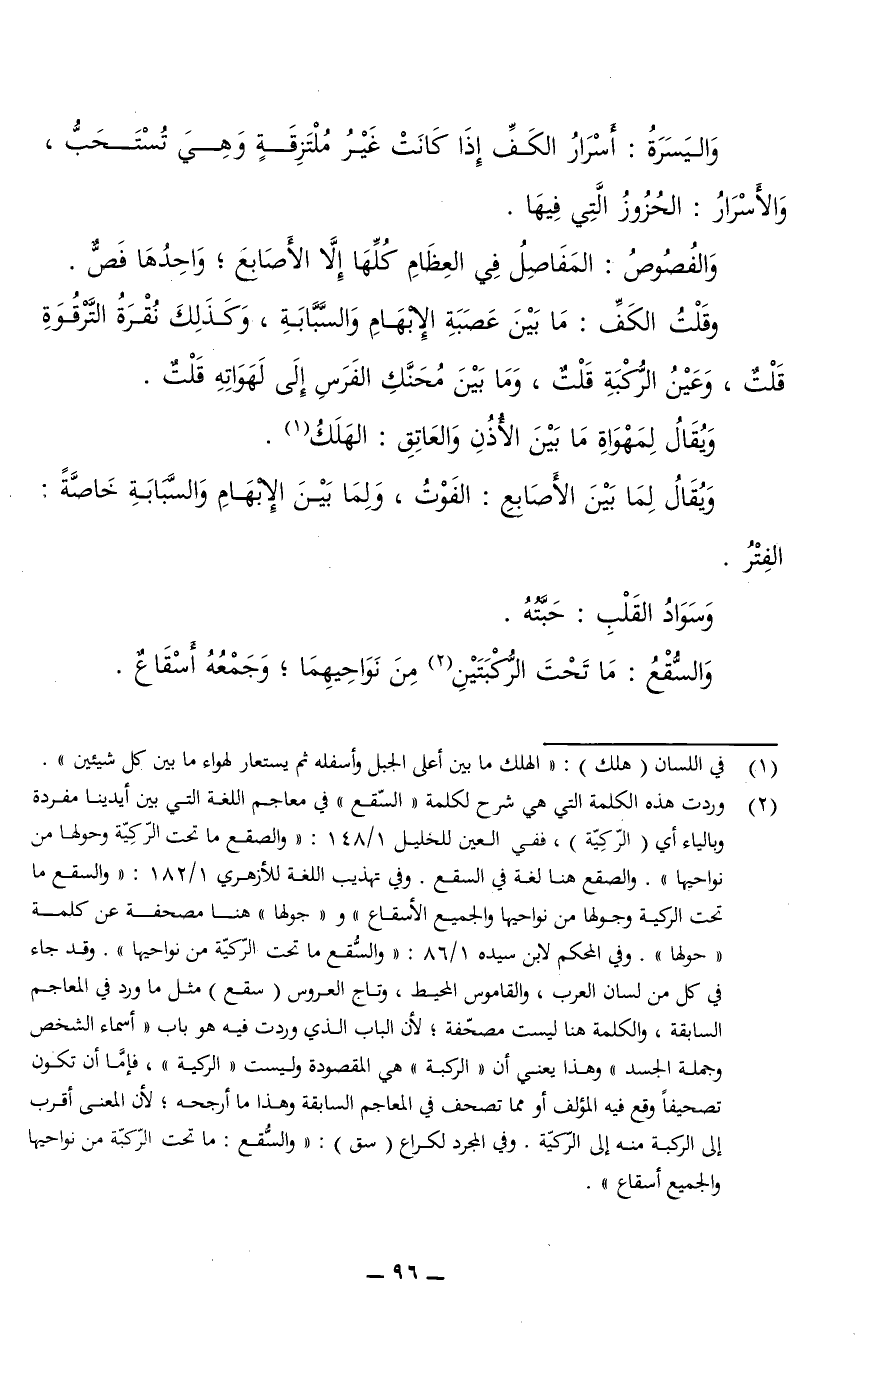 وَالـيَسَرَةُ : أَسْرَارُ الكَـفِّ إِذَا كَانَتْ غَيْـرُ مُلْتَزِقَــةٍ وَهِـــيَ تُسْتَـــحَبُّ ،
وَالأَسْرَارُ : الحُزُوزُ الَّتِي فِيهَا .
وَالفُصُوصُ : المَفَاصِلُ فِي العِظَامِ كُلِّهَا إِلَّا الأَصَابِعَ ؛ وَاحِدُهَا فَصٌّ .
وقَلْتُ الكَفِّ : مَا بَيْنَ عَصَبَةِ الإِبْهَـامِ وَالسَّبَّابَـةِ ، وَكَـذَلِكَ نُقْـرَةُ التَّرْقُـوَةِ
قَلْتٌ ، وَعَيْنُ الرُّكْبَةِ قَلْتٌ ، وَمَا بَيْنَ مُحَنَّكِ الفَرَسِ إِلَى لَهَوَاتِهِ قَلْتٌ .
وَيُقَالُ لِمَهْوَاةِ مَا بَيْنَ الأُذُنِ وَالعَاتِقِ : الهَلَكُ(١) .
وَيُقَالُ لِمَا بَيْنَ الأَصَابِعِ : الفَوْتُ ، وَلِمَا بَيْـنَ الإِبْهَـامِ وَالسَّبَّابَـةِ خَاصَّةً :
الفِتْرُ .
وَسَوَادُ القَلْبِ : حَبَّتُهُ .
وَالسُّقْعُ : مَا تَحْتَ الرُّكْبَتَيْنِ(٢) مِنَ نَوَاحِيهِمَا ؛ وَجَمْعُهُ أَسْقَاعٌ .
(١) في اللسان ( هلك ) : « الهلك ما بين أعلى الجبل وأسفله ثم يستعار لهواء ما بين كل شيئين » .
(٢) وردت هذه الكلمة التي هي شرح لكلمة « السّقع » في معاجم اللغة التـي بين أيدينـا مفـردة
وبالياء أي ( الرّكيّة ) ، ففـي العين للخليل ١٤٨/١ : « والصقع ما تحت الرّكيّة وحولهـا من
نواحيها » . والصقع هنـا لغة في السقع . وفي تهذيب اللغة للأزهري ١٨٢/١ : « والسقـع ما
تحت الركية وجـولها من نواحيها والجميع الأسقـاع » و « جولها » هنـــا مصحفــة عن كلمـــة
« حولها » . وفي المحكم لابن سيده ٨٦/١ : « والسُّقع ما تحت الرّكيّة من نواحيها » . وقـد جاء
في كل من لسان العرب ، والقاموس المحيـط ، وتـاج العروس ( سقـع ) مثـل ما ورد في المعاجم
السابقة ، والكلمة هنا ليست مصحّفة ؛ لأن الباب الـذي وردت فيـه هو باب « أسماء الشخص
وجملة الجسد » وهـذا يعنـي أن « الركبـة » هي المقصودة وليـست « الركيـة » ، فإمَّـا أن تكـون
تصحيفاً وقع فيه المؤلف أو مما تصحف في المعاجم السابقة وهـذا ما أرجحـه ؛ لأن المعنـى أقـرب
إلى الركبـة منـه إلى الرّكيّة . وفي المجرد لكراع ( سق ) : « والسُّقـع : ما تحت الرّكبّة من نواحيها
والجميع أسقاع » .
ــ ٩٦ ــ